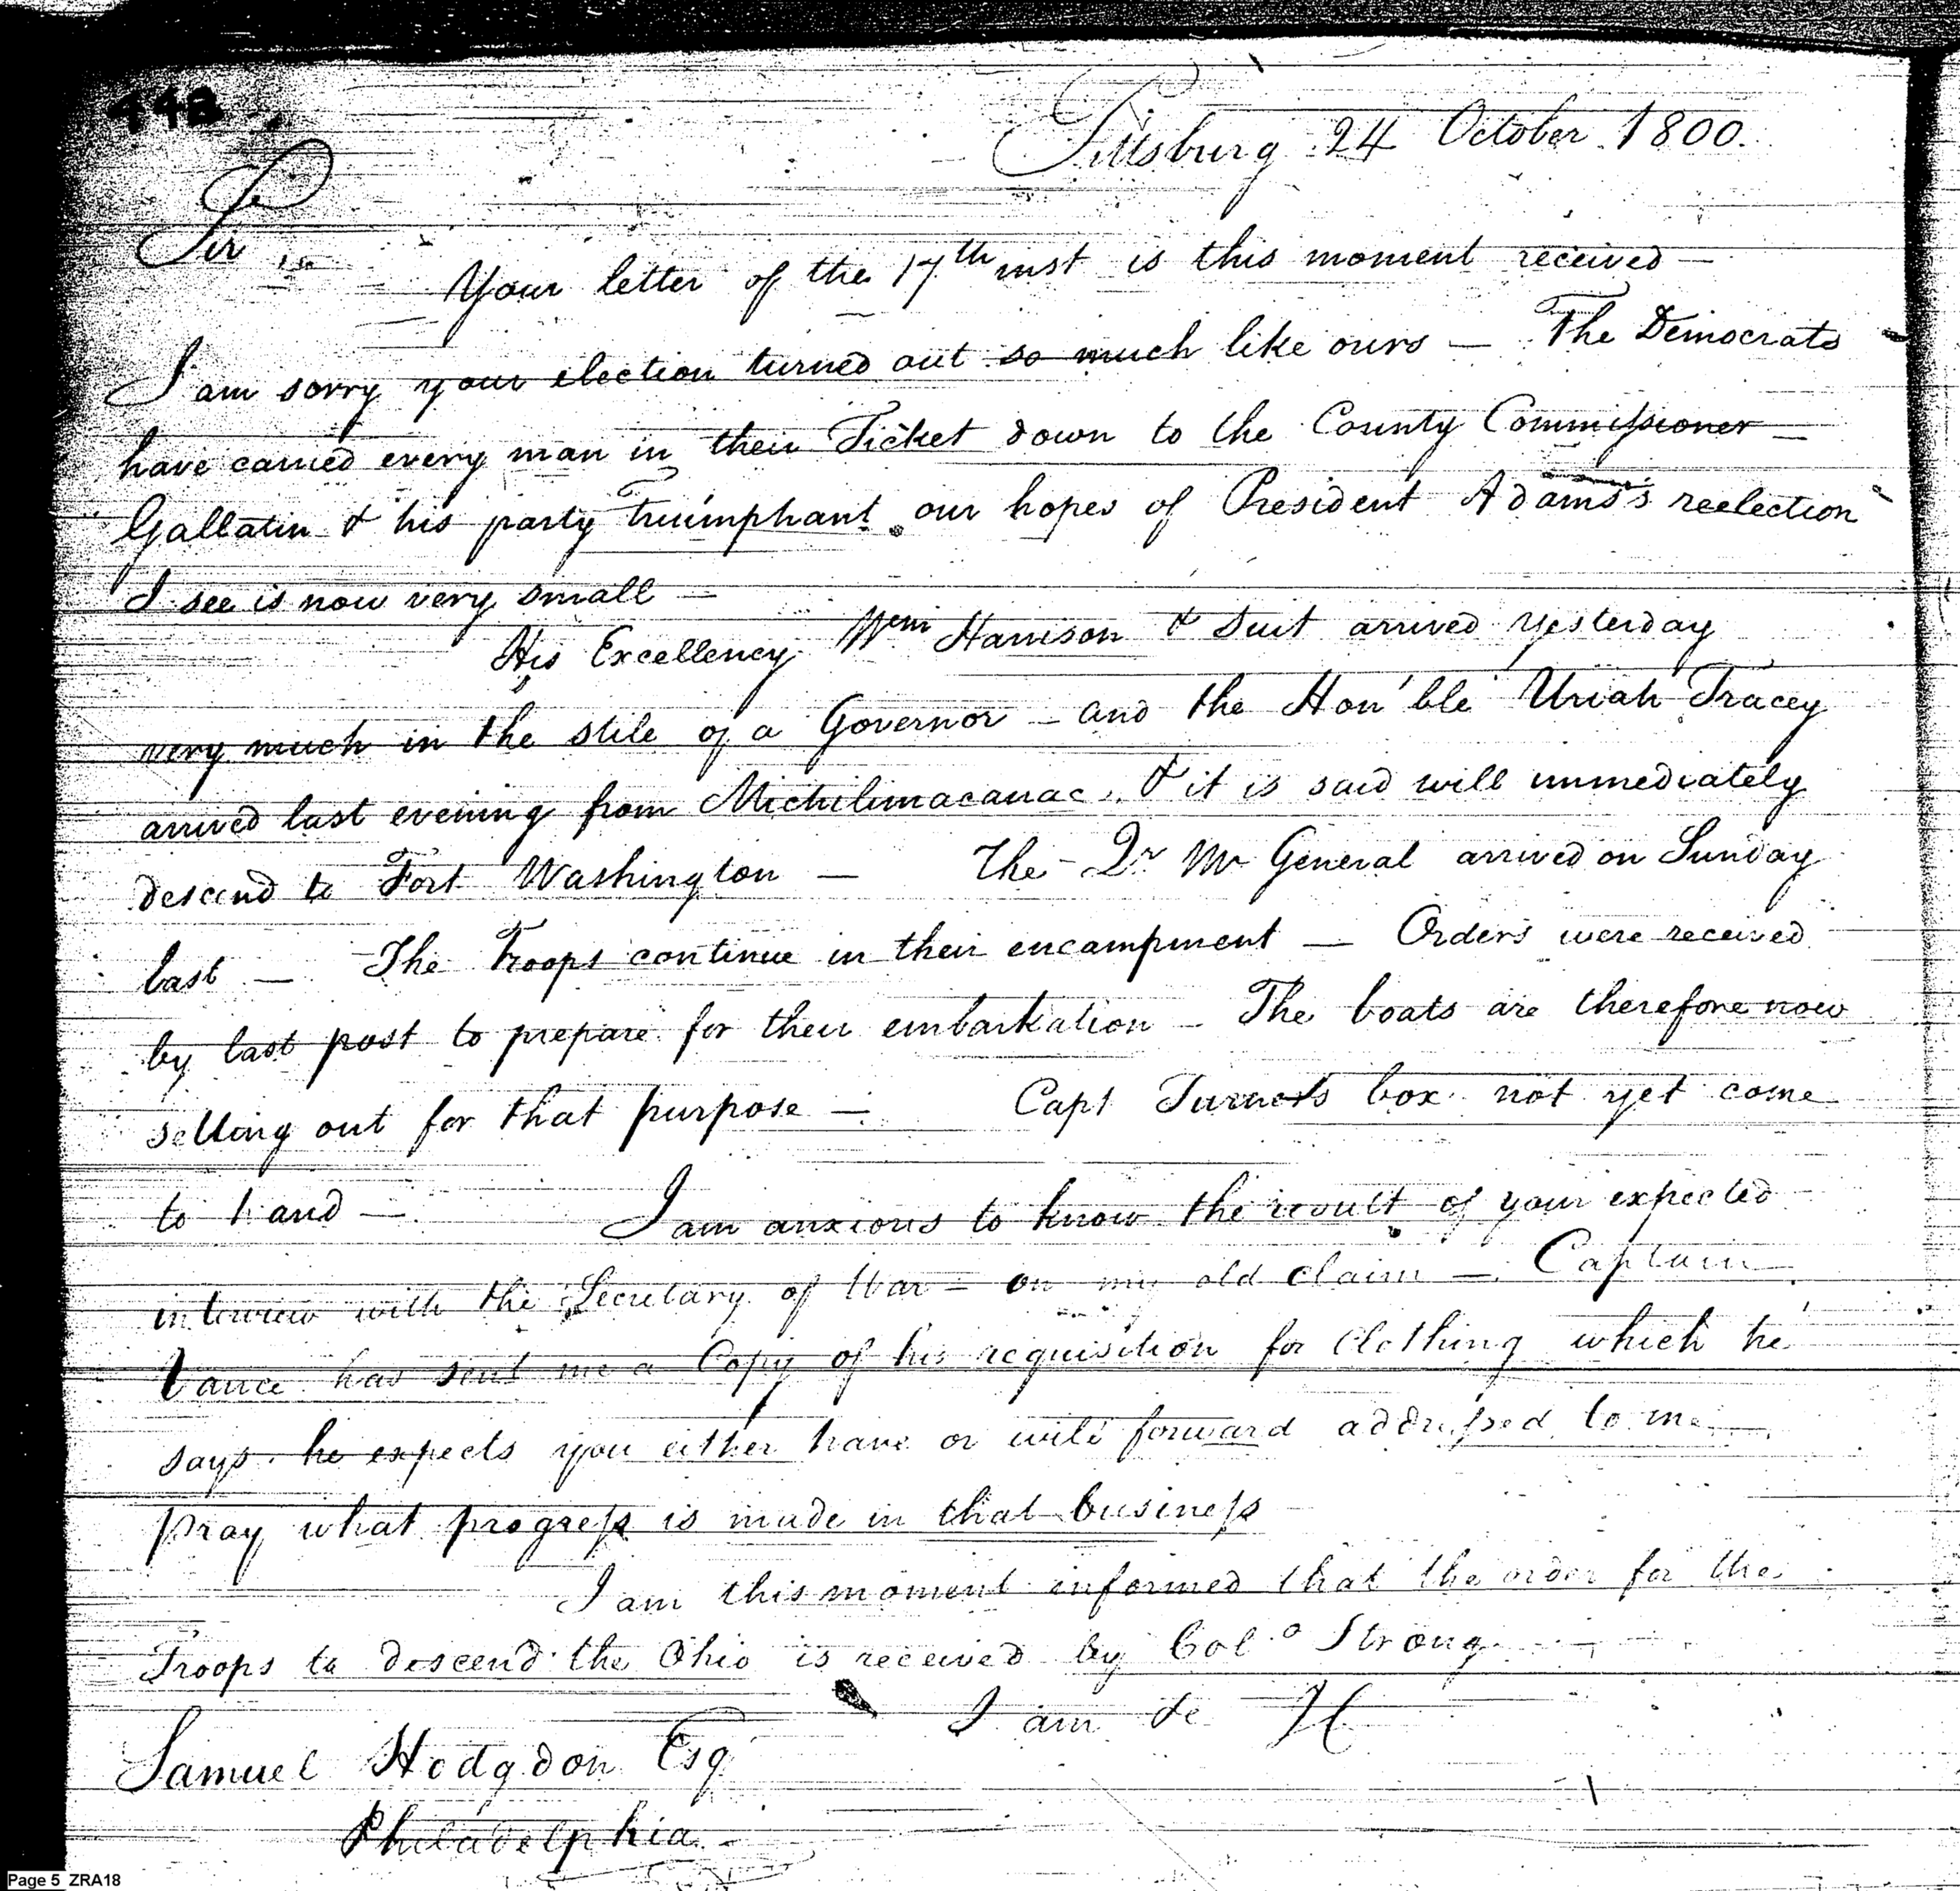 448
Pittsburg 24 October 1800.
Sir
Your letter of the 17th inst is this moment received —
I am sorry your election turned out so much like ours — The Democrats
have carried every man in their Ticket down to the County Commissioner —
Gallatin & his party triumphant. our hopes of President Adams's reelection
I see is now very small —
His Excellency Wm Harrison & Suit arrived yesterday
very much in the stile of a Governor — and the Hon'ble Uriah Tracey
arrived last evening from Michilimacanac. & it is said will immediately
descend to Fort Washington — The Qr Mr General arrived on Sunday
last — The Troops continue in their encampment — Orders were received
by last post to prepare for their embarkation — The boats are therefore now
setting out for that purpose — Capt Turner's box not yet come
to hand — I am anxious to know the result of your expected
interview with the Secretary of War — on my old claim — Captain
Vance has sent me a Copy of his requisition for Clothing which he
says he expects you either have or will forward addressed to me
pray what progress is made in that business
I am this moment informed that the order for the
Troops to descend the Ohio is received by Colo Strong
I am &c
Samuel Hodgdon Esq
Philadelphia
Page 5 ZRA18